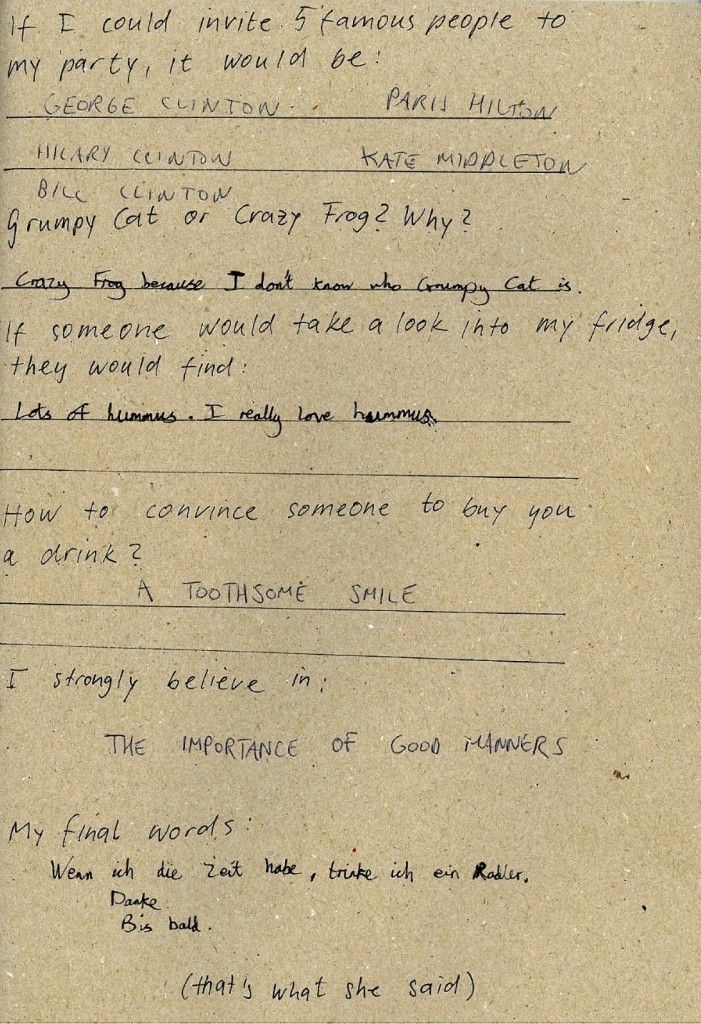 If I could invite 5 famous people to
my party, it would be:
GEORGE CLINTON. PARIS HILTON
HILARY CLINTON KATE MIDDLETON
BILL CLINTON
Grumpy Cat or Crazy Frog? Why?
Crazy Frog because I don't know who Grumpy Cat is.
If someone would take a look into my fridge,
they would find:
Lots of hummus. I really love hummus.
How to convince someone to buy you
a drink?
A TOOTHSOME SMILE
I strongly believe in:
THE IMPORTANCE OF GOOD MANNERS
My final words:
Wenn ich die Zeit habe, trinke ich ein Radler.
Danke
Bis bald.
(that's what she said)